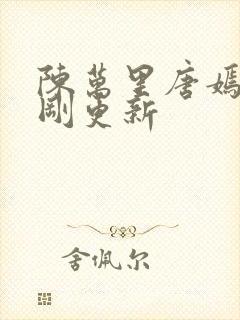 陳萬里唐嫣
剛更新
舍佩尔